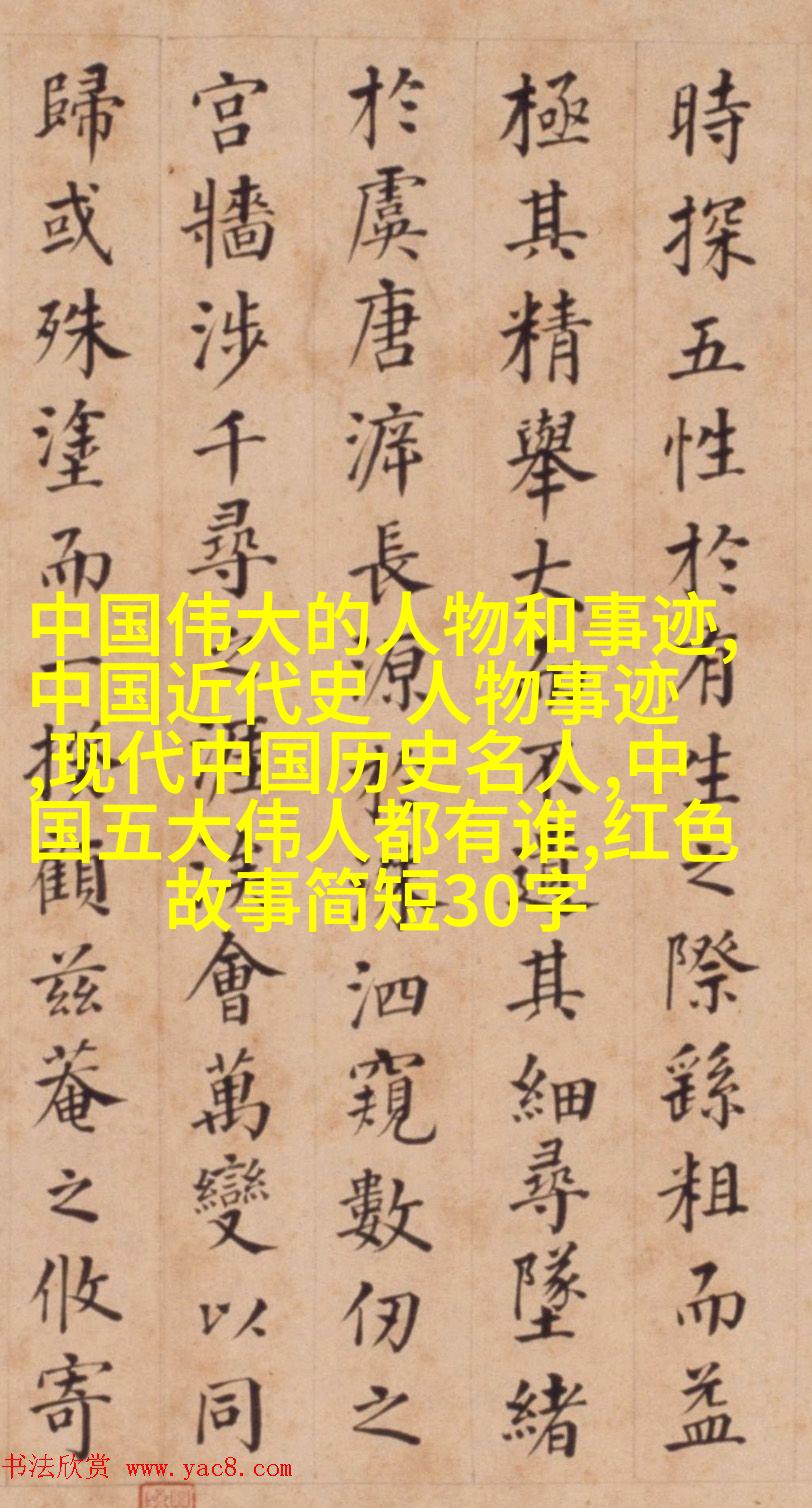 時探五性於有生之際繇粗而益
極其精舉大不遺其細尋墜緒
於虞唐長源於洙泗窺數仞之
宮牆涉千尋之涯涘會萬變以同
歸或殊塗而一揆顧茲菴之攸寄
中国伟大的人物和事迹,
中国近代史 人物事迹
,现代中国历史名人,中
国五大伟人都有谁,红色
故事简短30字
书法欣赏 www.yac8.com